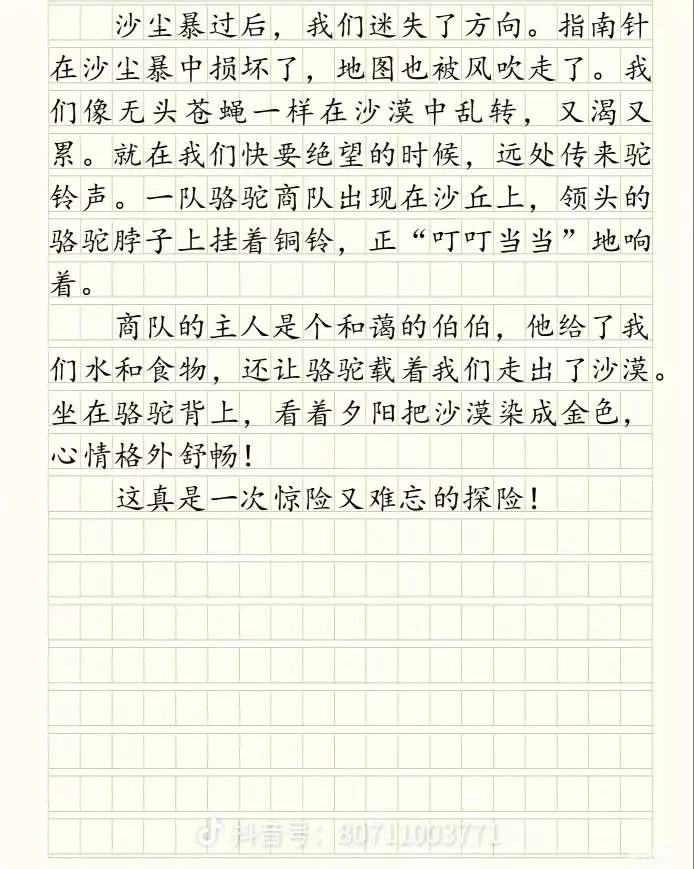 沙尘暴过后，我们迷失了方向。指南针
在沙尘暴中损坏了，地图也被风吹走了。我
们像无头苍蝇一样在沙漠中乱转，又渴又
累。就在我们快要绝望的时候，远处传来驼
铃声。一队骆驼商队出现在沙丘上，领头的
骆驼脖子上挂着铜铃，正“叮叮当当”地响
着。
商队的主人是个和蔼的伯伯，他给了我
们水和食物，还让骆驼载着我们走出了沙漠。
坐在骆驼背上，看着夕阳把沙漠染成金色，
心情格外舒畅！
这真是一次惊险又难忘的探险！
抖音号：80711003771